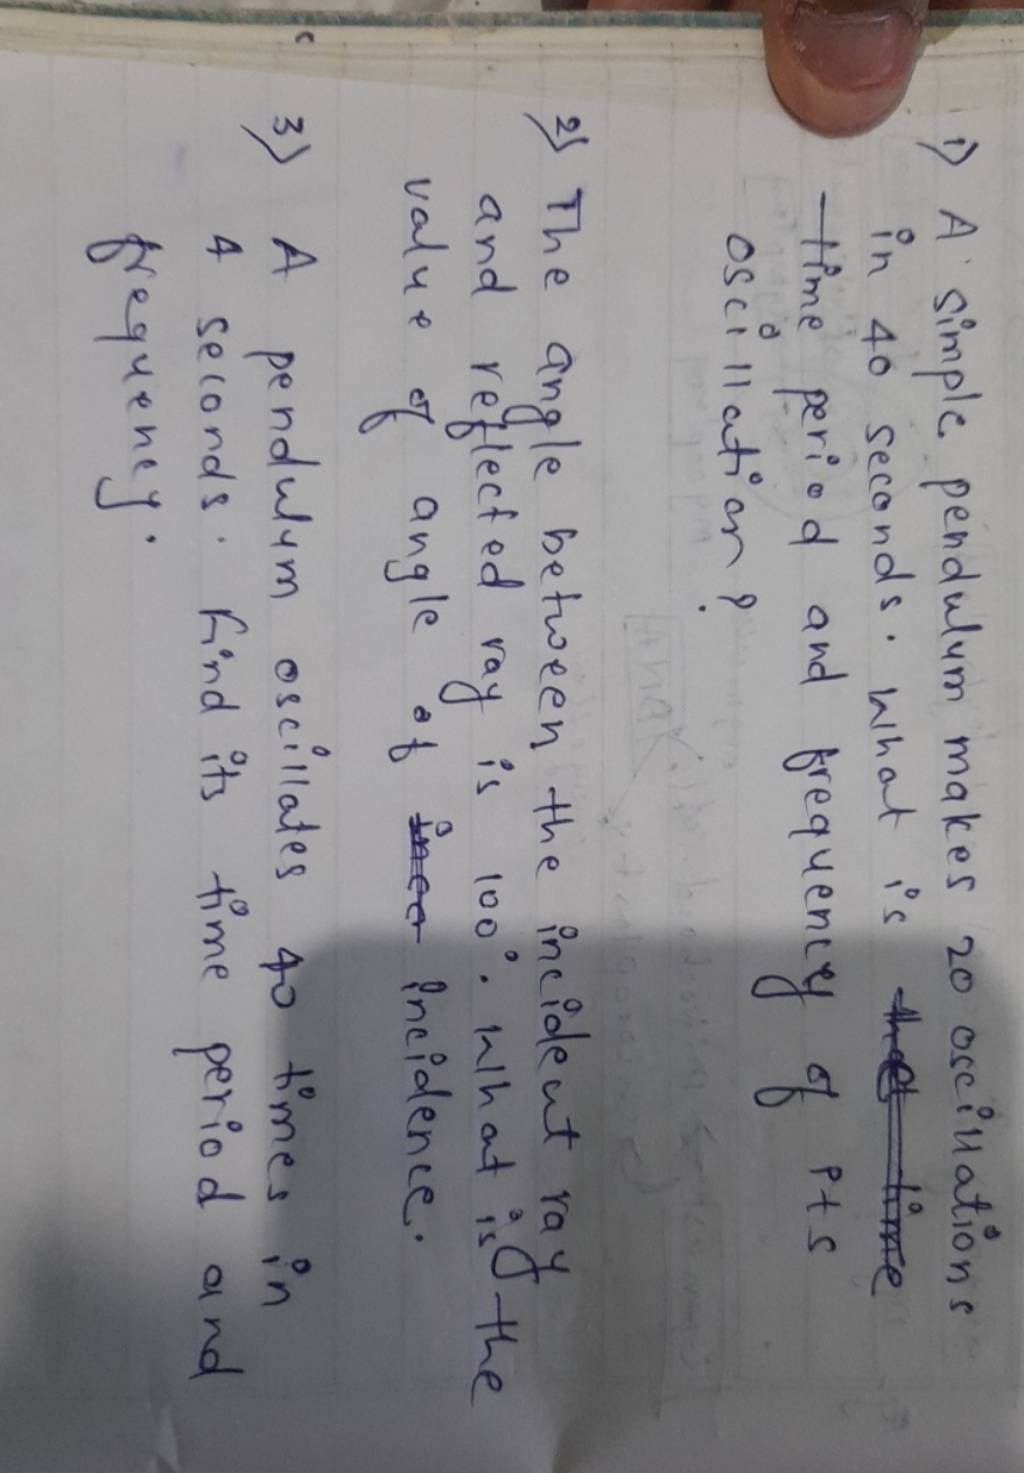 1) A simple pendulum makes 20 oscillations
in 40 seconds. What is the time
time period and frequency of its
oscillation?
2) The angle between the incident ray
and reflected ray is 100°. What is the
value of angle of incidence.
3) A pendulum oscillates 40 times in
4 seconds. Find its time period and
frequency.